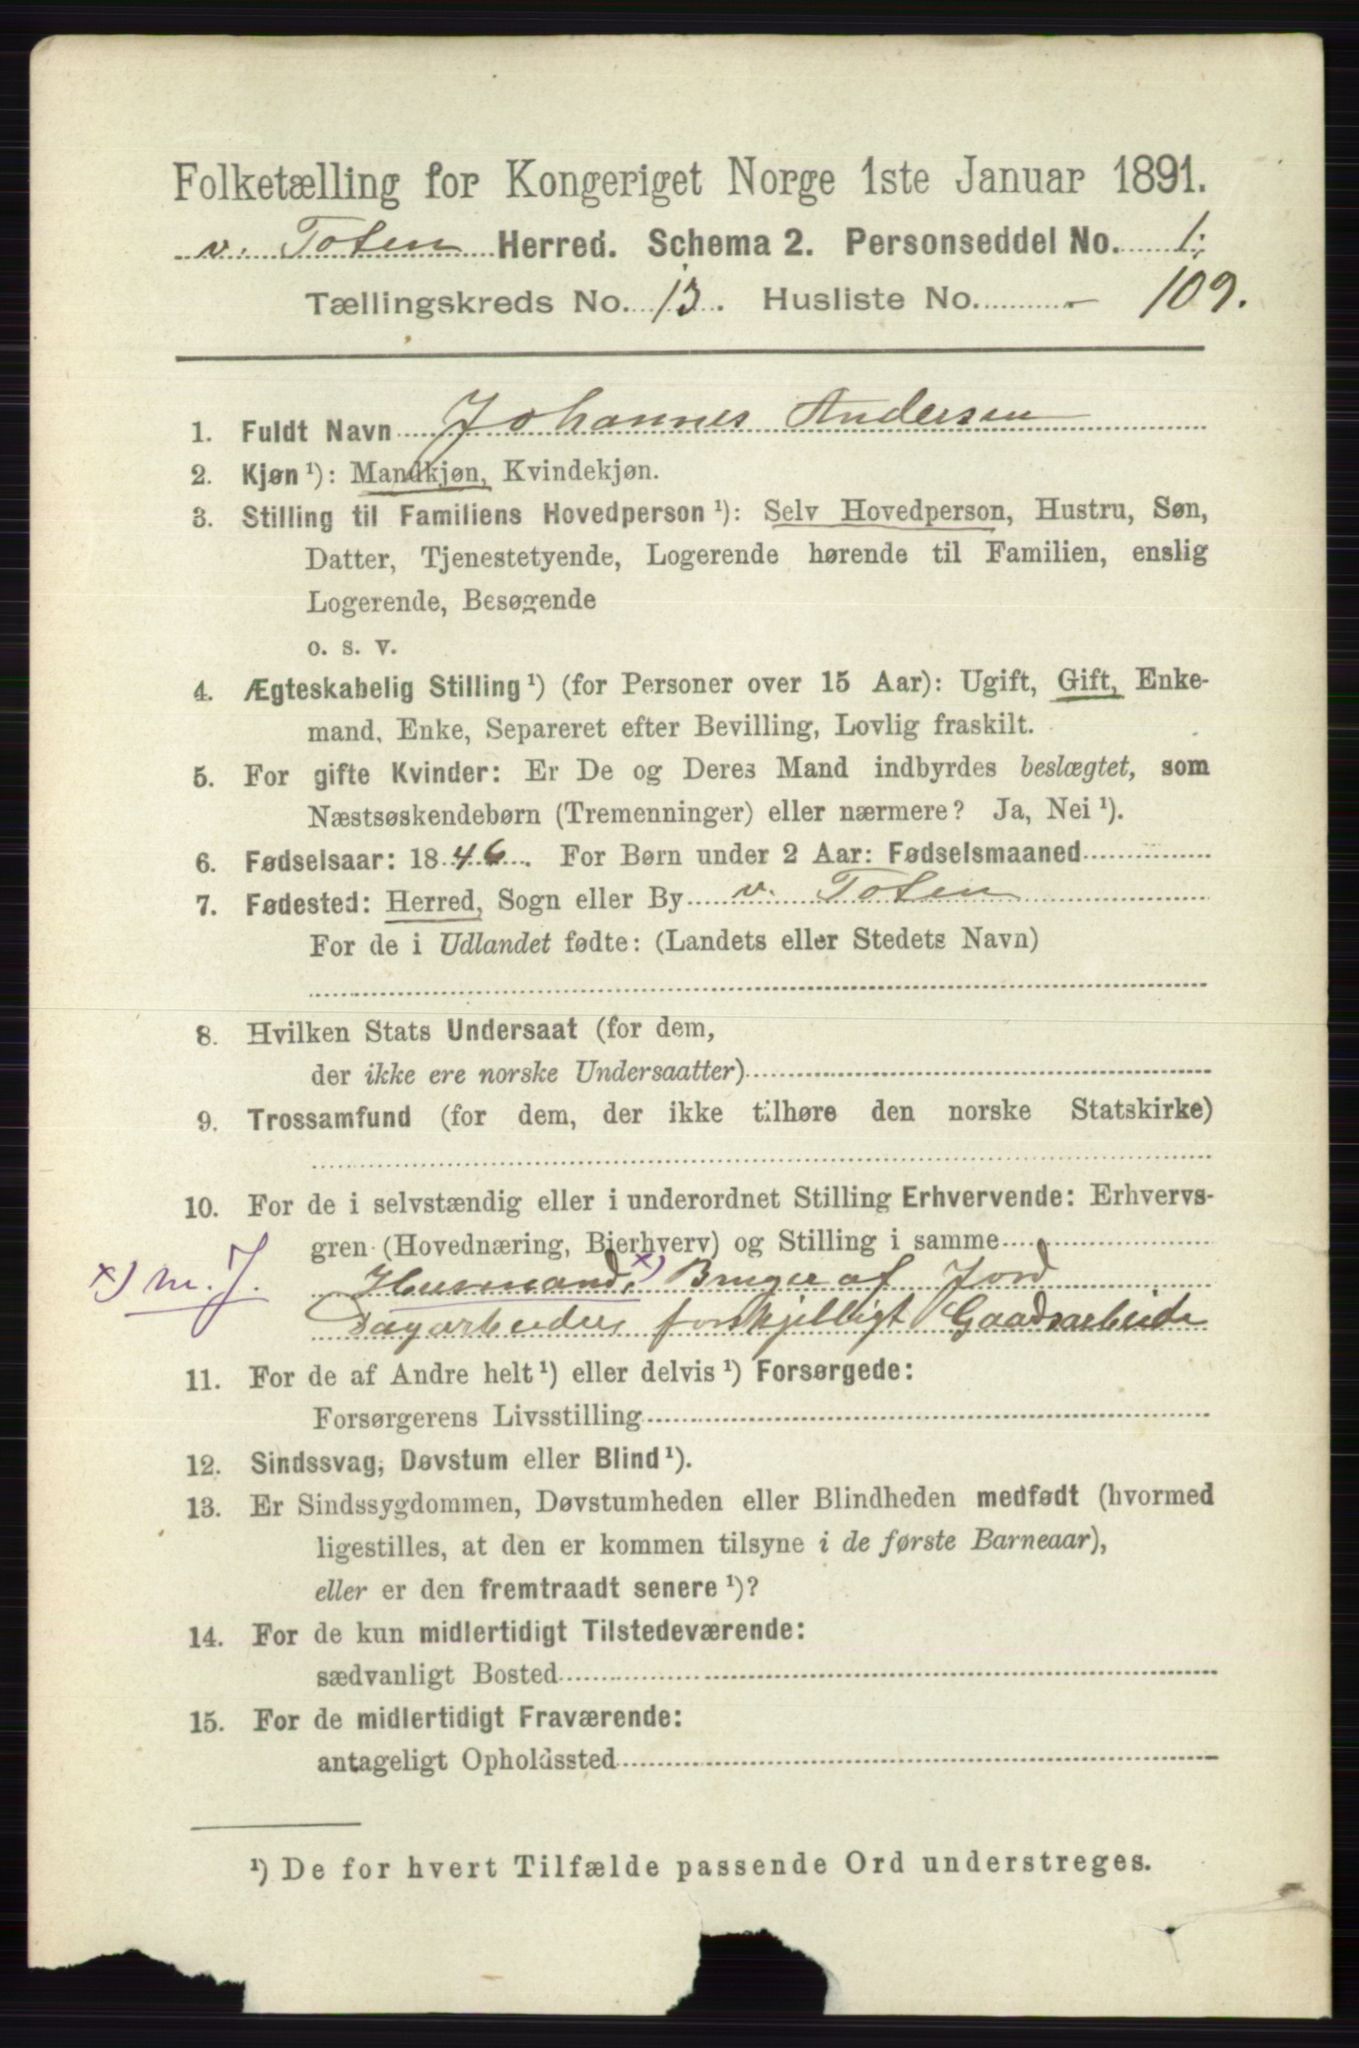 Folketælling for Kongeriget Norge 1ste Januar 1891.
v. Toten Herred. Schema 2. Personseddel No. 1;
Tællingskreds No. 13. Husliste No. - 109.
1. Fuldt Navn Johannes Andersen
2. Kjøn ¹): Mandkjøn, Kvindekjøn.
3. Stilling til Familiens Hovedperson ¹): Selv Hovedperson, Hustru, Søn,
Datter, Tjenestetyende, Logerende hørende til Familien, enslig
Logerende, Besøgende
o. s. v.
4. Ægteskabelig Stilling ¹) (for Personer over 15 Aar): Ugift, Gift, Enke-
mand, Enke, Separeret efter Bevilling, Lovlig fraskilt.
5. For gifte Kvinder: Er De og Deres Mand indbyrdes beslægtet, som
Næstsøskendebørn (Tremenninger) eller nærmere? Ja, Nei ¹).
6. Fødselsaar: 1846. For Børn under 2 Aar: Fødselsmaaned
7. Fødested: Herred, Sogn eller By v. Toten
For de i Udlandet fødte: (Landets eller Stedets Navn)
8. Hvilken Stats Undersaat (for dem,
der ikke ere norske Undersaatter)
9. Trossamfund (for dem, der ikke tilhøre den norske Statskirke)
10. For de i selvstændig eller i underordnet Stilling Erhvervende: Erhvervs-
gren (Hovednæring, Bierhverv) og Stilling i samme
x) m. J. Husmand, x) Bruger af Jord
Dagarbeider forskjelligt Gaardsarbeide
11. For de af Andre helt ¹) eller delvis ¹) Forsørgede:
Forsørgerens Livsstilling
12. Sindssvag, Døvstum eller Blind ¹).
13. Er Sindssygdommen, Døvstumheden eller Blindheden medfødt (hvormed
ligestilles, at den er kommen tilsyne i de første Barneaar),
eller er den fremtraadt senere ¹)?
14. For de kun midlertidigt Tilstedeværende:
sædvanligt Bosted
15. For de midlertidigt Fraværende:
antageligt Opholdssted
¹) De for hvert Tilfælde passende Ord understreges.